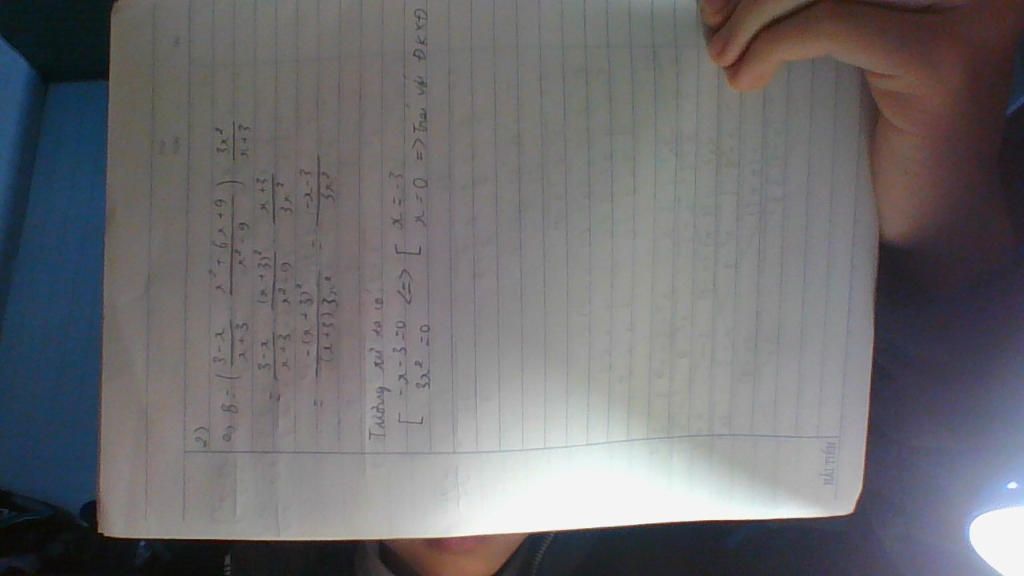 2)
a) B = ( 3-x / x+3 · x² + 6x + 9 / x² - 9 ) · 3x² / x+3
= 3-x / x+3 · (x+3)² / x² - 9 · x+3 / 3x²
= -(x+3)² / (x+3)3x² = -x-3 / 3x²
Trường
[ -x-3=0 <=> [ x = -3
3x² = 0 x = 0 => Trái với ĐKXĐ
HẢI TIẾN